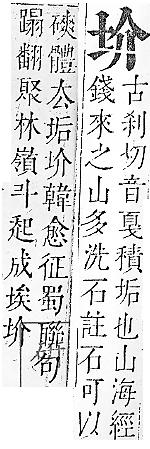 圿
古刹切音戛積垢也山海經
錢來之山多洗石註石可以
磢體厺垢圿韓愈征蜀聯句
蹋翻聚林嶺斗起成埃圿